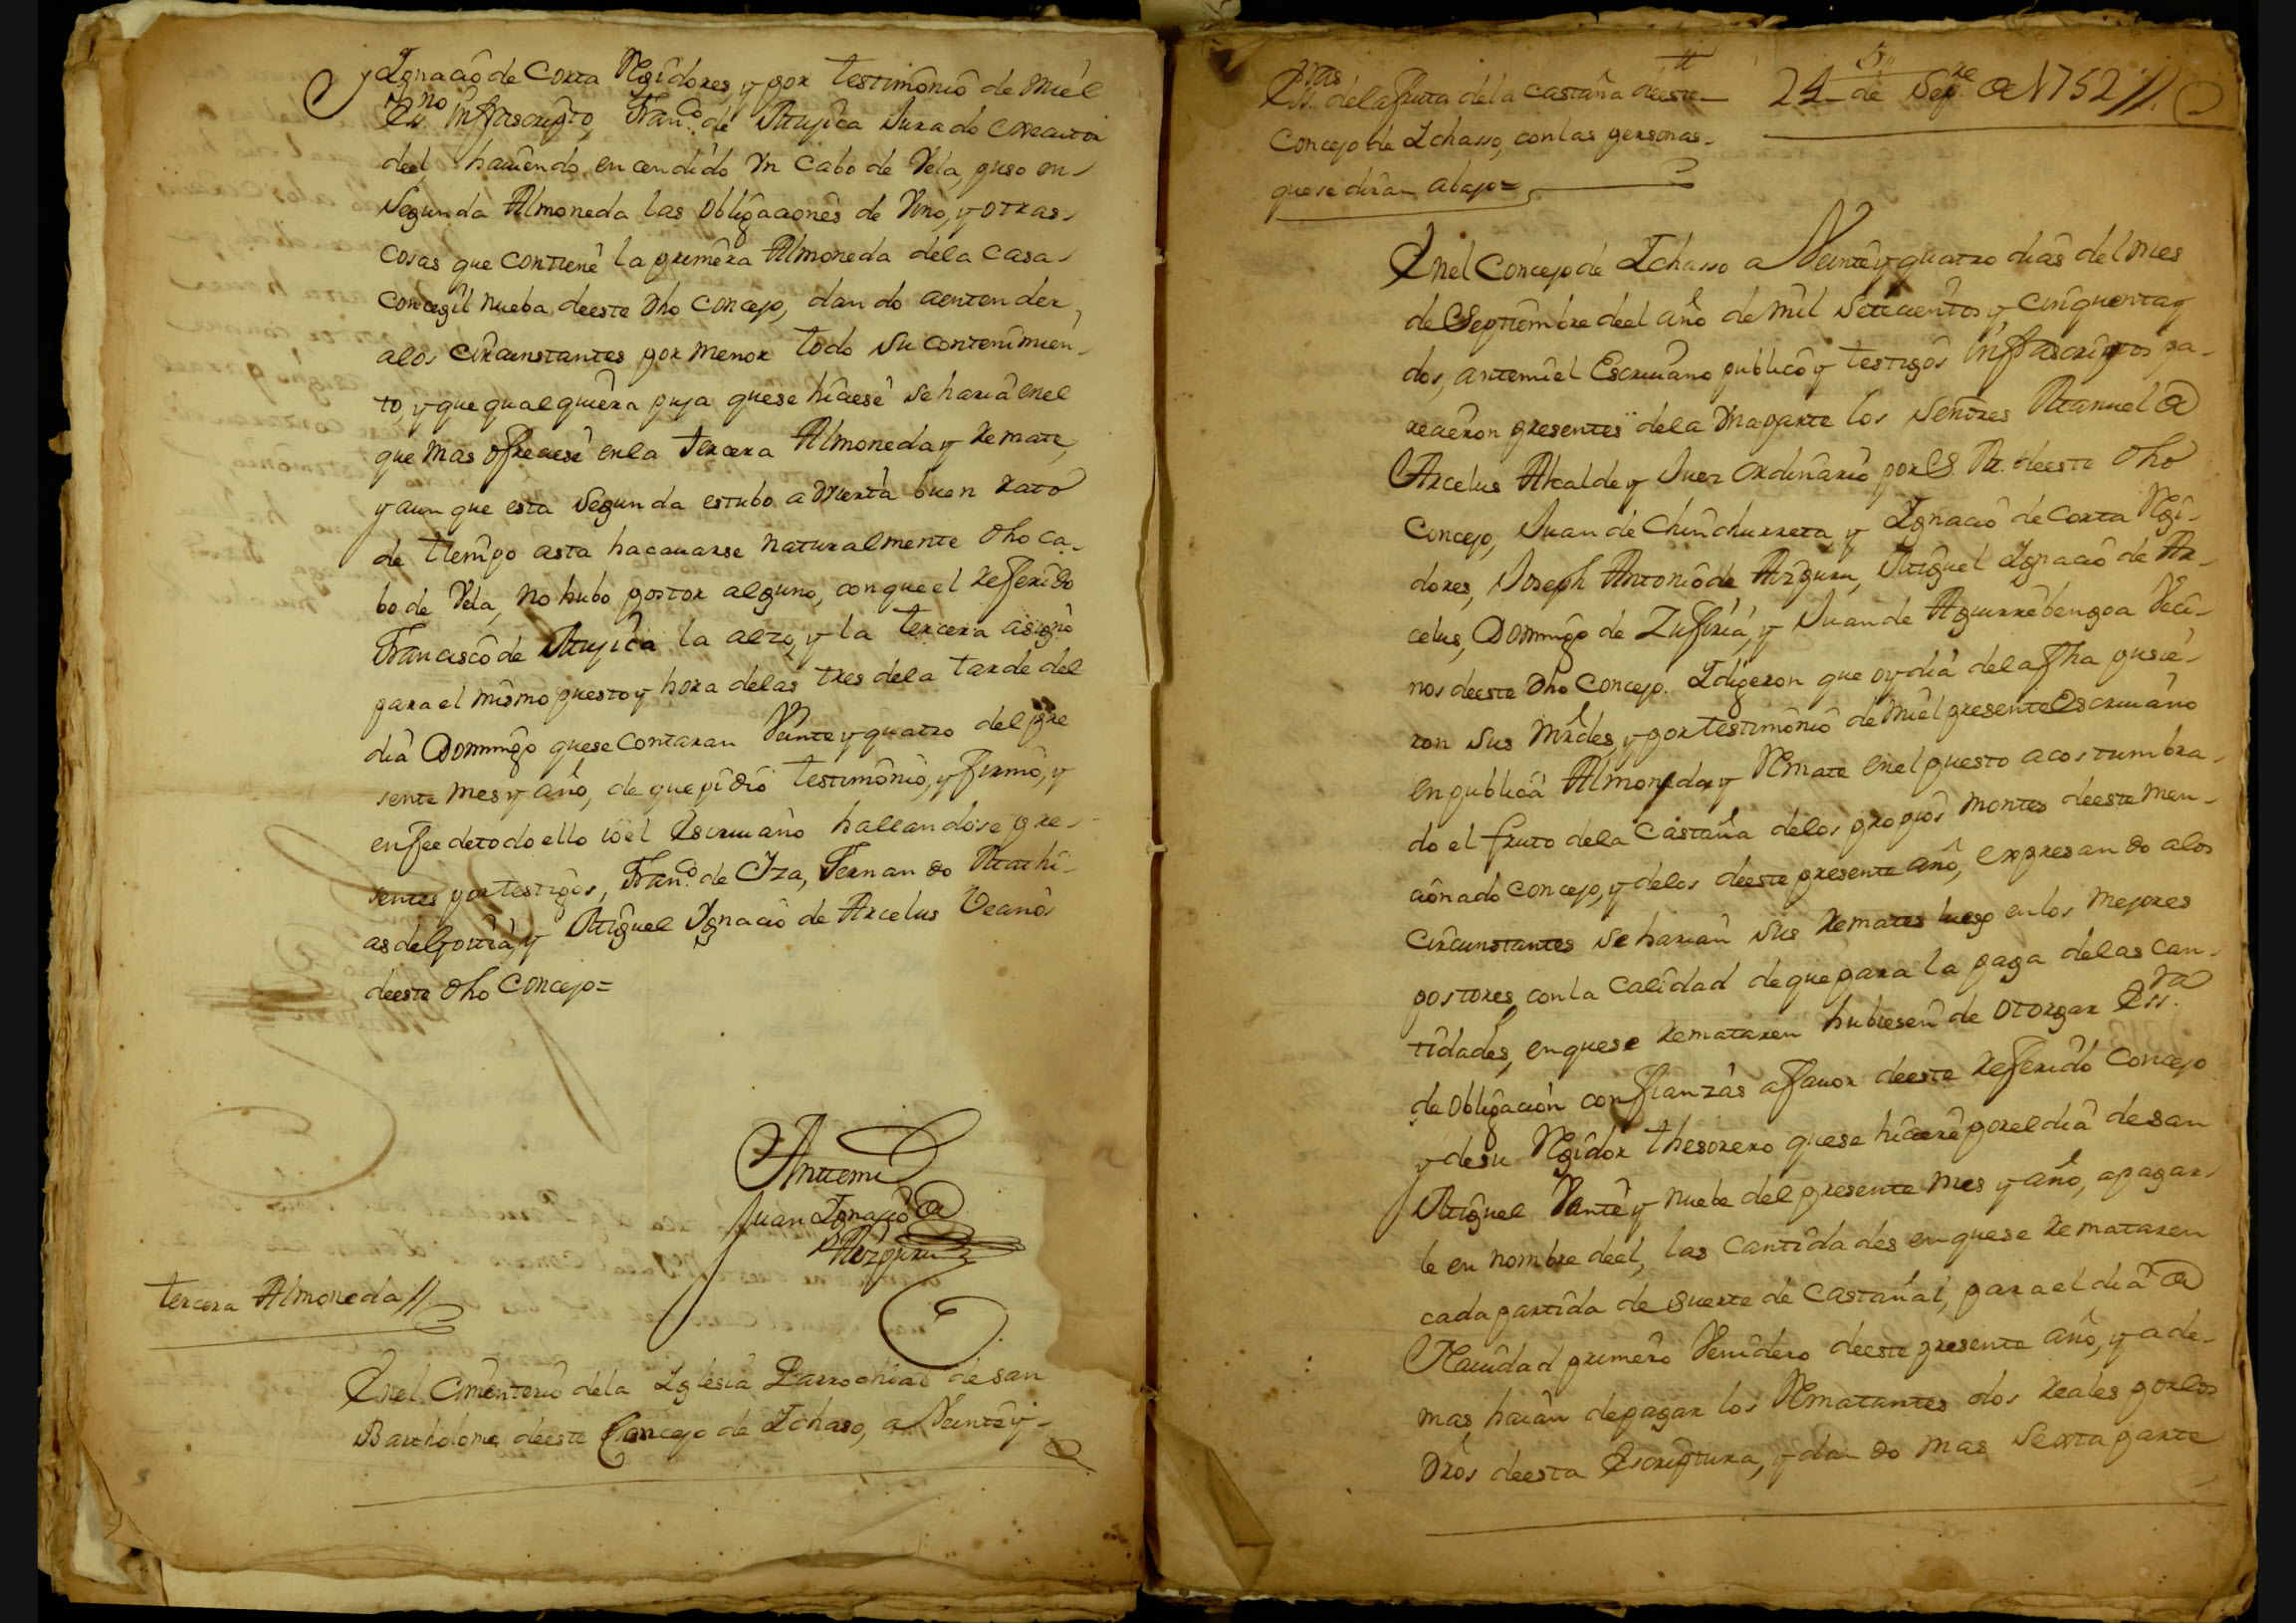 y Ignacio de Corta Rexidores, y por testimonio de mi el
Ess.no infrascripto, Fran.co de Muxica Jurado executor
deel, haviendo encendido Vn Cabo de Vela, puso en
Segunda Almoneda las obligaciones de Vino, y otras
cosas que contiene la primera Almoneda dela Casa
concegil nueba deeste dho Concejo, dando aentender,
alos circunstantes por menor todo su contenimien-
to, y que qualquiera puja quese hiciese se haria enel
que mas ofreciese enla tercera Almoneda y Remate,
y aun que esta segunda estubo abierta buen rato
de tiempo asta hacavarse naturalmente dho ca-
bo de Vela, no hubo postor alguno, conque el referido
Francisco de Muxica la alzo, y la tercera asigno
para el mismo puesto y hora delas tres dela tarde del
dia Domingo quese contaran Veinte y quatro del pre
sente mes y año, de que pidio testimonio, y firmo, y
enfee detodo ello io el Escrivano hallandose pre-
sentes por testigos, Fran.co de Iza, Fernando Mathi-
as de Gortia, y Miguel Ignacio de Arcelus Vecinos
deeste dho Concejo=
Antemi
Juan Ignacio de
Aizpuru
tercera Almoneda//
Enel Cimenterio dela Iglesia Parrochial de san
Bartholome deeste Concejo de Ichaso, a Veinte y
Ess.ras dela fruta dela castaña deeste
Concejo de Ichasso, con las personas
que se diran abajo=
24 de Sep.re de 1752//
Enel Concejo de Ichasso a Veinte y quatro dias del mes
de Septiembre deel año de mil setecientos y cinquenta y
dos, antemi el Escrivano publico y testigos infrascriptos pa-
recieron presentes dela Vna parte los señores Manuel de
Arcelus Alcalde y Juez ordinario por S. M. deeste dho
Concejo, Juan de Chinchurreta, y Ignacio de Corta Rexi-
dores, Joseph Antonio de Aizpuru, Miguel Ignacio de Ar-
celus, Domingo de Zufiria, y Juan de Aguirrebengoa Veci-
nos deeste dho Concejo. I digeron que oy dia dela fha pusie-
ron sus mrdes, y por testimonio de mi el presente Escrivano
en publica Almoneda y Remate enel puesto acostumbra-
do el fruto dela Castaña delos propios montes deeste men-
cionado concejo, y delos deeste presente año, expresando alos
circunstantes se harian sus remates luego enlos mejores
postores, con la calidad de que para la paga delas can-
tidades, enquese remataren hubiesen de otorgar Ess.ra
de obligacion con fianzas a favor deeste referido Concejo
y de su Rexidor thesorero quese hiciere por el dia de san
Miguel Veinte y nuebe del presente mes y año, apagar-
le en nombre deel, las cantidades enquese remataren
cada partida de suerte de castañal, para el dia de
Navidad primero Venidero deeste presente año, y ade-
mas, hauian de pagar los Rematantes dos reales por los
dros deesta Escriptura, y dando mas sexta parte